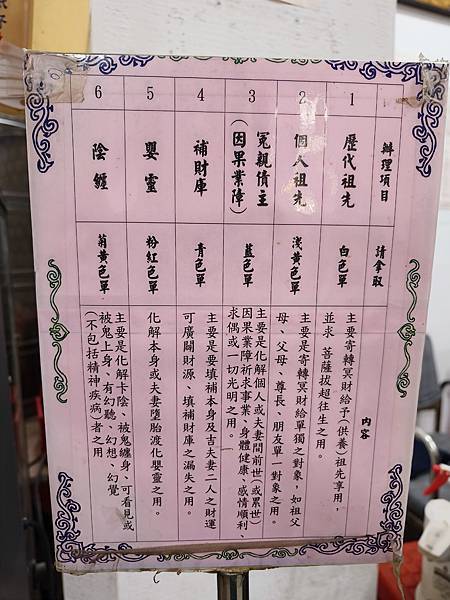 辦理項目
請拿取
內容
1
歷代祖先
白色單
主要寄轉冥財給予(供養)祖先享用,
並求 菩薩拔超往生之用。
2
個人祖先
淺黃色單
主要是寄轉冥財給單獨之對象,如祖父
母、父母、尊長、朋友單一對象之用。
3
冤親債主
(因果業障)
藍色單
主要是化解個人或夫妻間前世(或累世)
因果業障祈求事業、身體健康、感情順利、
求偶或一切光明之用。
4
補財庫
青色單
主要是要填補本身及吉夫妻二人之財運
可廣關財源、填補財庫之漏失之用。
5
嬰靈
粉紅色單
化解本身或夫妻墮胎渡化嬰靈之用。
6
陰纏
菊黃色單
主要是化解卡陰、被鬼纏身、可看見或
被鬼上身、有幻聽、幻想、幻覺
(不包括精神疾病)者之用